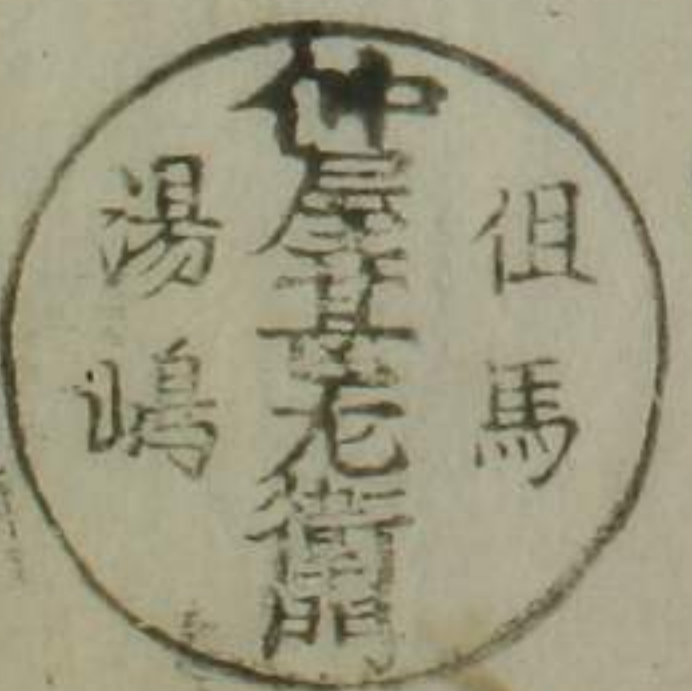 但馬
仲屋甚左衛門
湯嶋